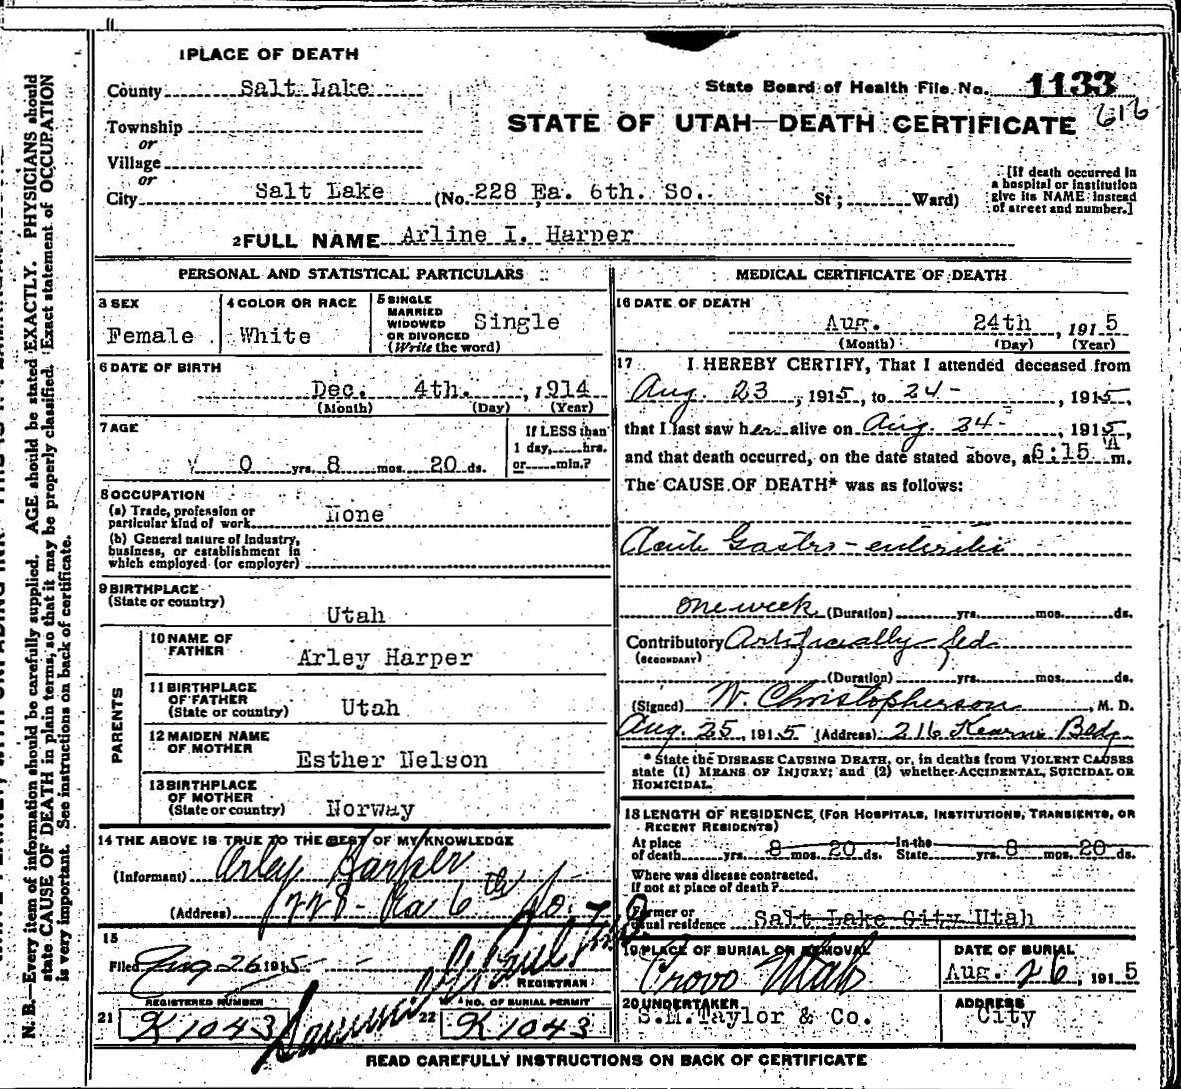 1 PLACE OF DEATH
County Salt Lake
State Board of Health File No. 1133
616
Township
or
Village
or
City Salt Lake (No. 228 Ea. 6th. So. St; Ward)
STATE OF UTAH—DEATH CERTIFICATE
[If death occurred in
a hospital or institution
give its NAME instead
of street and number.]
2 FULL NAME Arline I. Harper
PERSONAL AND STATISTICAL PARTICULARS
3 SEX
Female
4 COLOR OR RACE
White
5 SINGLE
MARRIED
WIDOWED
OR DIVORCED
(Write the word)
Single
6 DATE OF BIRTH
Dec. 4th. , 1914
(Month) (Day) (Year)
7 AGE
0 yrs. 8 mos. 20 ds.
If LESS than
1 day, hrs.
or min.?
8 OCCUPATION
(a) Trade, profession or
particular kind of work None
(b) General nature of industry,
business, or establishment in
which employed (or employer)
9 BIRTHPLACE
(State or country)
Utah
PARENTS
10 NAME OF
FATHER
Arley Harper
11 BIRTHPLACE
OF FATHER
(State or country) Utah
12 MAIDEN NAME
OF MOTHER
Esther Nelson
13 BIRTHPLACE
OF MOTHER
(State or country) Norway
14 THE ABOVE IS TRUE TO THE BEST OF MY KNOWLEDGE
(Informant) Arley Harper
(Address) 228 - Ea 6th So.
15
Filed Aug 26 1915
REGISTRAR
REGISTERED NUMBER
21 K1043
NO. OF BURIAL PERMIT
22 K1043
MEDICAL CERTIFICATE OF DEATH
16 DATE OF DEATH
Aug. 24th , 1915
(Month) (Day) (Year)
17 I HEREBY CERTIFY, That I attended deceased from
Aug. 23 , 1915, to 24 - , 1915,
that I last saw her alive on Aug. 24 - , 1915,
and that death occurred, on the date stated above, at 6:15 A m.
The CAUSE OF DEATH* was as follows:
Acute Gastro-enteritis
one week (Duration) yrs. mos. ds.
Contributory Artificially fed
(SECONDARY)
(Duration) yrs. mos. ds.
(Signed) W. Christopherson , M. D.
Aug. 25, 1915 (Address) 216 Kearns Bldg.
* State the DISEASE CAUSING DEATH, or, in deaths from VIOLENT CAUSES
state (1) MEANS OF INJURY; and (2) whether ACCIDENTAL, SUICIDAL OR
HOMICIDAL.
18 LENGTH OF RESIDENCE (FOR HOSPITALS, INSTITUTIONS, TRANSIENTS, OR
RECENT RESIDENTS)
At place
of death yrs. 8 mos. 20 ds. In the
State yrs. 8 mos. 20 ds.
Where was disease contracted,
if not at place of death?
Former or
usual residence Salt Lake City Utah
19 PLACE OF BURIAL OR REMOVAL
Provo Utah
DATE OF BURIAL
Aug. 26, 1915
20 UNDERTAKER
S.M. Taylor & Co.
ADDRESS
City
READ CAREFULLY INSTRUCTIONS ON BACK OF CERTIFICATE
N. B.—Every item of information should be carefully supplied. AGE should be stated EXACTLY. PHYSICIANS should
state CAUSE OF DEATH in plain terms, so that it may be properly classified. Exact statement of OCCUPATION
is very important. See instructions on back of certificate.